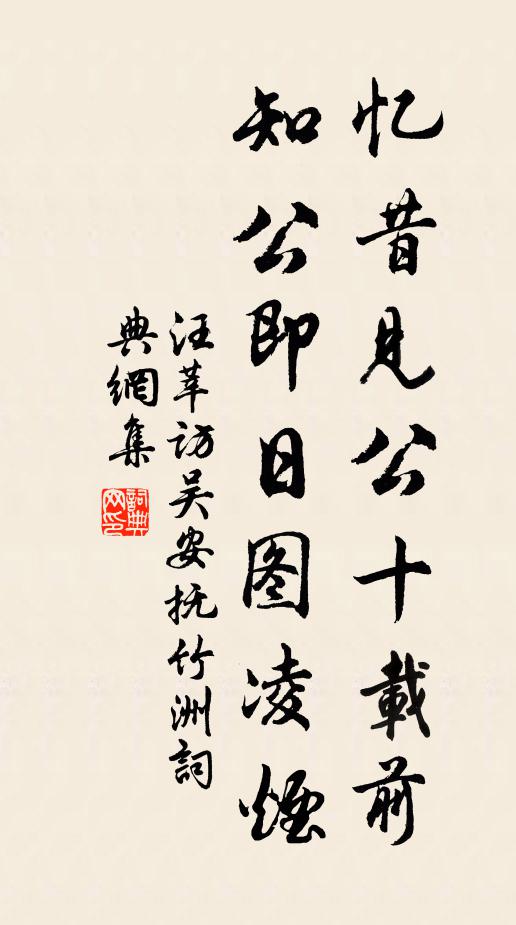 忆昔見公十載前
知公即日图凌煙
汪莘访吴安抚竹洲詞
典網集
詞典网印